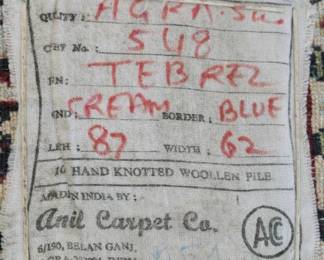 QULITY: AGRA. Su.
CBF No.: 548
DN: TEBREZ
GND: CREAM BORDER: BLUE
LTH: 87 WIDTH: 62
16 HAND KNOTTED WOOLLEN PILE
MADE IN INDIA BY:
Anil Carpet Co.
ACC
6/190, BELAN GANJ,